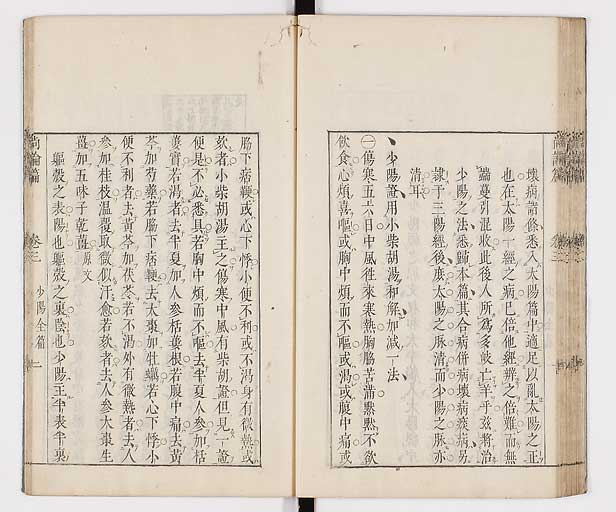 壞病諸條悉入太陽篇中適足以亂太陽之正
也在太陽一經之病已倍他經辨之倍難而無
端蔓引混收此後人所爲多岐亡羊乎茲將治
少陽之法悉歸本篇其合病併病壞病痰病另
隸于三陽經後庶太陽之脉清而少陽之脉亦
清耳
少陽證用小柴胡湯和解加減一法
㊀傷寒五六日中風往來寒熱胸脇苦滿默默不欲
飲食心煩喜嘔或胸中煩而不嘔或渴或腹中痛或
脇下痞鞕或心下悸小便不利或不渴身有微熱或
欬者小柴胡湯主之傷寒中風有柴胡證但見一證
便是不必悉具若胸中煩而不嘔去半夏人參加栝
蔞實若渴者去半夏加人參栝蔞根若腹中痛去黃
芩加芍藥若脇下痞鞕去大棗加牡蠣若心下悸小
便不利者去黃芩加茯苓若不渴外有微熱者去人
參加桂枝溫覆取微似汗愈若欬者去人參大棗生
薑加五味子乾薑原文
軀殼之表陽也軀殼之裏陰也少陽主半表半裏
尚論篇 卷三 少陽全篇 二